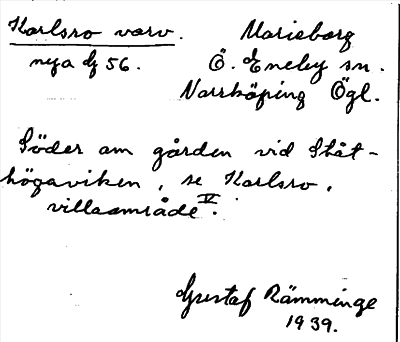 Karlsro varv. Marieborg
nya dg 56. Ö. Eneby sn.
Norrköping Ögl.
Söder om gården vid Ståt-
högaviken, se Karlsro,
villaområde V.
Gustaf Rämminge
1939.